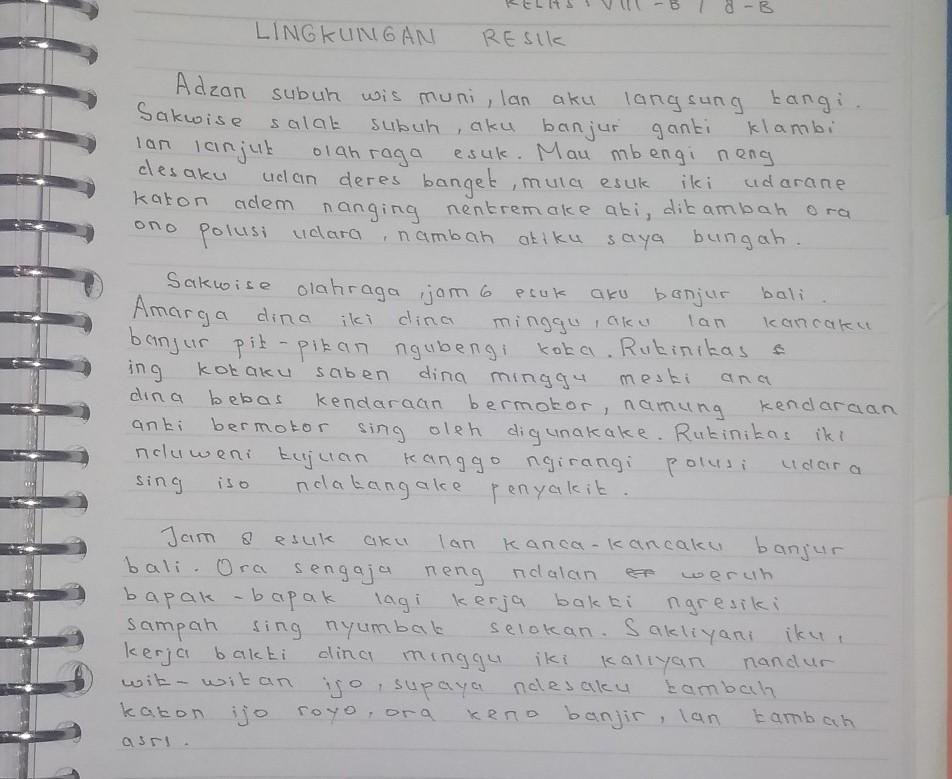 KELAS : VIII - B / 8 - B
LINGKUNGAN RESIK
Adzan subuh wis muni, lan aku langsung tangi.
Sakwise salat subuh, aku banjur ganti klambi
lan lanjut olahraga esuk. Mau mbengi neng
desaku udan deres banget, mula esuk iki udarane
katon adem nanging nentremake ati, ditambah ora
ono polusi udara, nambah atiku saya bungah.
Sakwise olahraga, jam 6 esuk aku banjur bali.
Amarga dina iki dina minggu, aku lan kancaku
banjur pit-pitan ngubengi kota. Rutinitas
ing kotaku saben dina minggu mesti ana
dina bebas kendaraan bermotor, namung kendaraan
anti bermotor sing oleh digunakake. Rutinitas iki
nduweni tujuan kanggo ngirangi polusi udara
sing iso ndatangake penyakit.
Jam 8 esuk aku lan kanca-kancaku banjur
bali. Ora sengaja neng ndalan weruh
bapak-bapak lagi kerja bakti ngresiki
sampah sing nyumbat selokan. Sakliyani iku,
kerja bakti dina minggu iki kaliyan nandur
wit-witan ijo, supaya ndesaku tambah
katon ijo royo, ora keno banjir, lan tambah
asri.